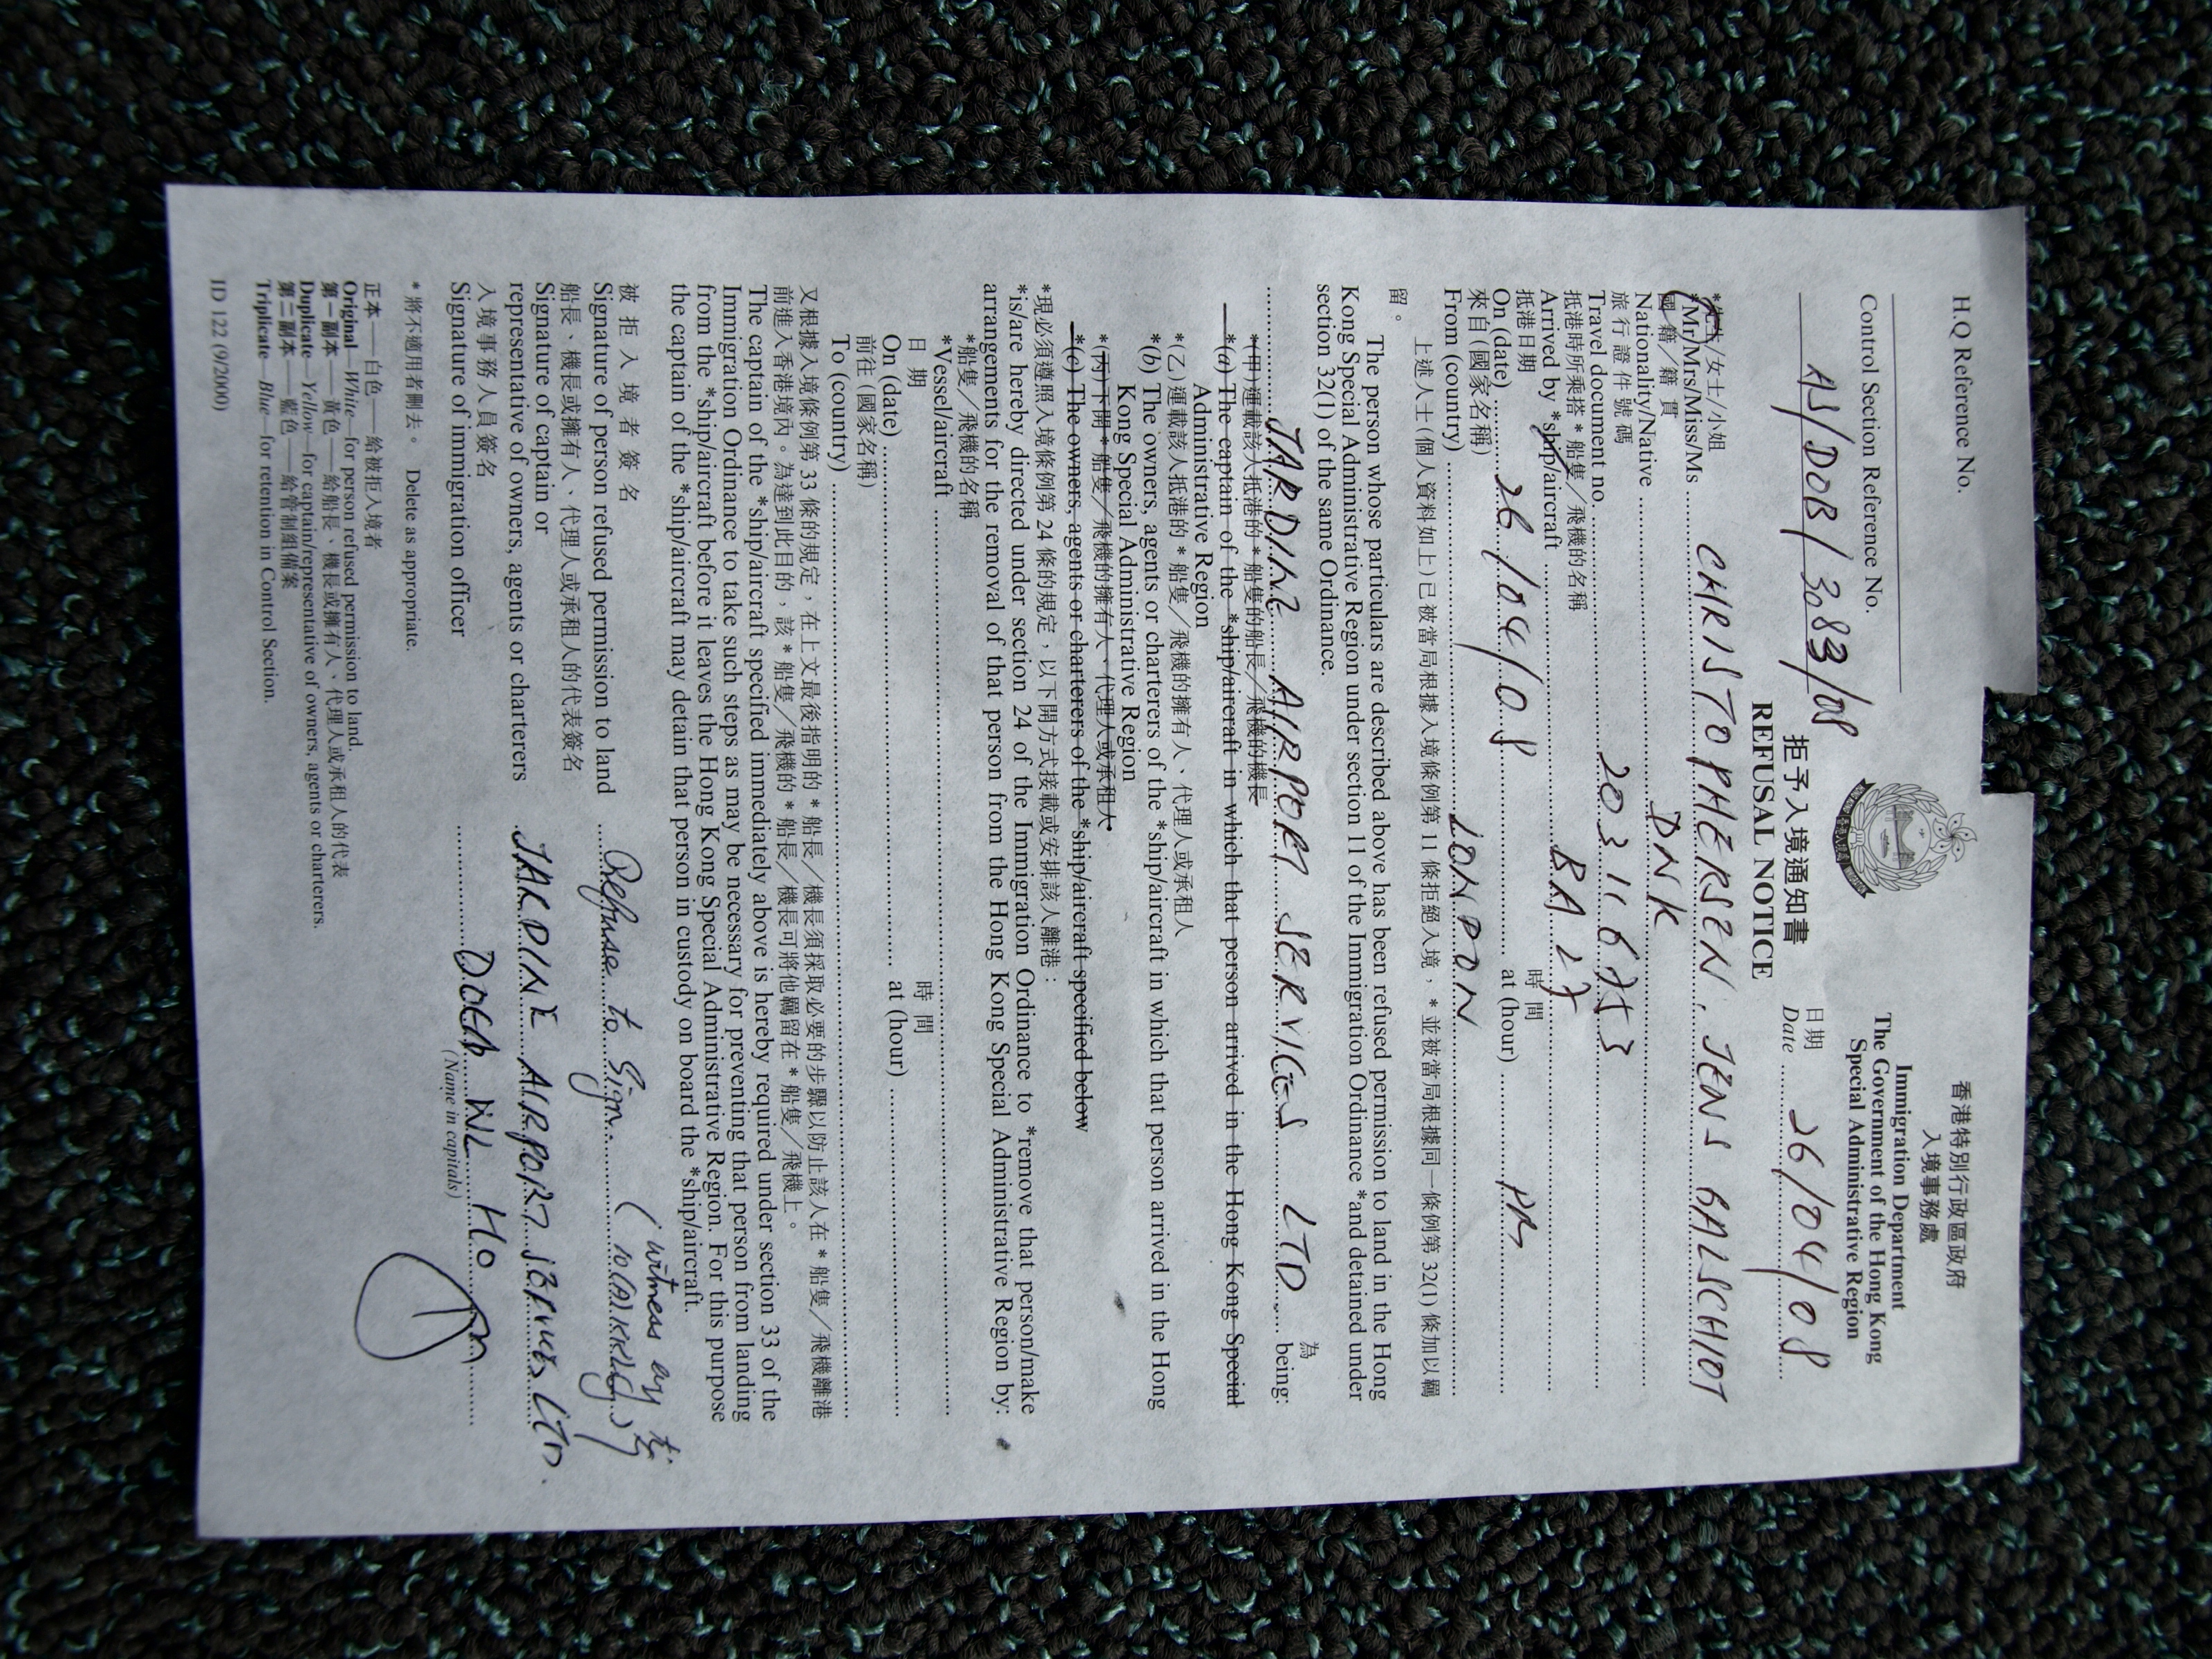 H.Q Reference No.
Control Section Reference No.
AS/DOB/3083/08
香港特別行政區政府
入境事務處
Immigration Department
The Government of the Hong Kong
Special Administrative Region
拒予入境通知書
REFUSAL NOTICE
日期
Date 26/04/08
*先生/女士/小姐
*Mr/Mrs/Miss/Ms CHRISTOPHERSEN, JENS GALSCHIOT
國籍/籍貫
Nationality/Native DNK
旅行證件號碼
Travel document no. 203116753
抵港時所乘搭*船隻/飛機的名稱
Arrived by *ship/aircraft BA 27
抵港日期 時間
On (date) 26/04/08 at (hour) PM
來自(國家名稱)
From (country) LONDON
上述人士(個人資料如上)已被當局根據入境條例第 11 條拒絕入境,*並被當局根據同一條例第 32(1) 條加以羈
留。
The person whose particulars are described above has been refused permission to land in the Hong
Kong Special Administrative Region under section 11 of the Immigration Ordinance *and detained under
section 32(1) of the same Ordinance.
為
JARDINE AIRPORT SERVICES LTD being:
*(甲)運載該人抵港的*船隻的船長/飛機的機長
*(a) The captain of the *ship/aircraft in which that person arrived in the Hong Kong Special
Administrative Region
*(乙)運載該人抵港的*船隻/飛機的擁有人、代理人或承租人
*(b) The owners, agents or charterers of the *ship/aircraft in which that person arrived in the Hong
Kong Special Administrative Region
*(丙)下開*船隻/飛機的擁有人、代理人或承租人
*(c) The owners, agents or charterers of the *ship/aircraft specified below
*現必須遵照入境條例第 24 條的規定,以下開方式接載或安排該人離港:
*is/are hereby directed under section 24 of the Immigration Ordinance to *remove that person/make
arrangements for the removal of that person from the Hong Kong Special Administrative Region by:
*船隻/飛機的名稱
*Vessel/aircraft
日期 時間
On (date) at (hour)
前往(國家名稱)
To (country)
又根據入境條例第 33 條的規定,在上文最後指明的*船長/機長須採取必要的步驟以防止該人在*船隻/飛機離港
前進入香港境內。為達到此目的,該*船隻/飛機的*船長/機長可將他羈留在*船隻/飛機上。
The captain of the *ship/aircraft specified immediately above is hereby required under section 33 of the
Immigration Ordinance to take such steps as may be necessary for preventing that person from landing
from the *ship/aircraft before it leaves the Hong Kong Special Administrative Region. For this purpose
the captain of the *ship/aircraft may detain that person in custody on board the *ship/aircraft.
被拒入境者簽名
Signature of person refused permission to land Refuse to Sign. (witness by
船長、機長或擁有人、代理人或承租人的代表簽名
Signature of captain or
representative of owners, agents or charterers JARDINE AIRPORT SERVICES LTD.
入境事務人員簽名
Signature of immigration officer DOCA WL HO
(Name in capitals)
*將不適用者刪去。 Delete as appropriate.
正本——白色——給被拒入境者
Original—White—for person refused permission to land.
第一副本——黃色——給船長、機長或擁有人、代理人或承租人的代表
Duplicate—Yellow—for captain/representative of owners, agents or charterers.
第二副本——藍色——給管制組備案
Triplicate—Blue—for retention in Control Section.
ID 122 (9/2000)